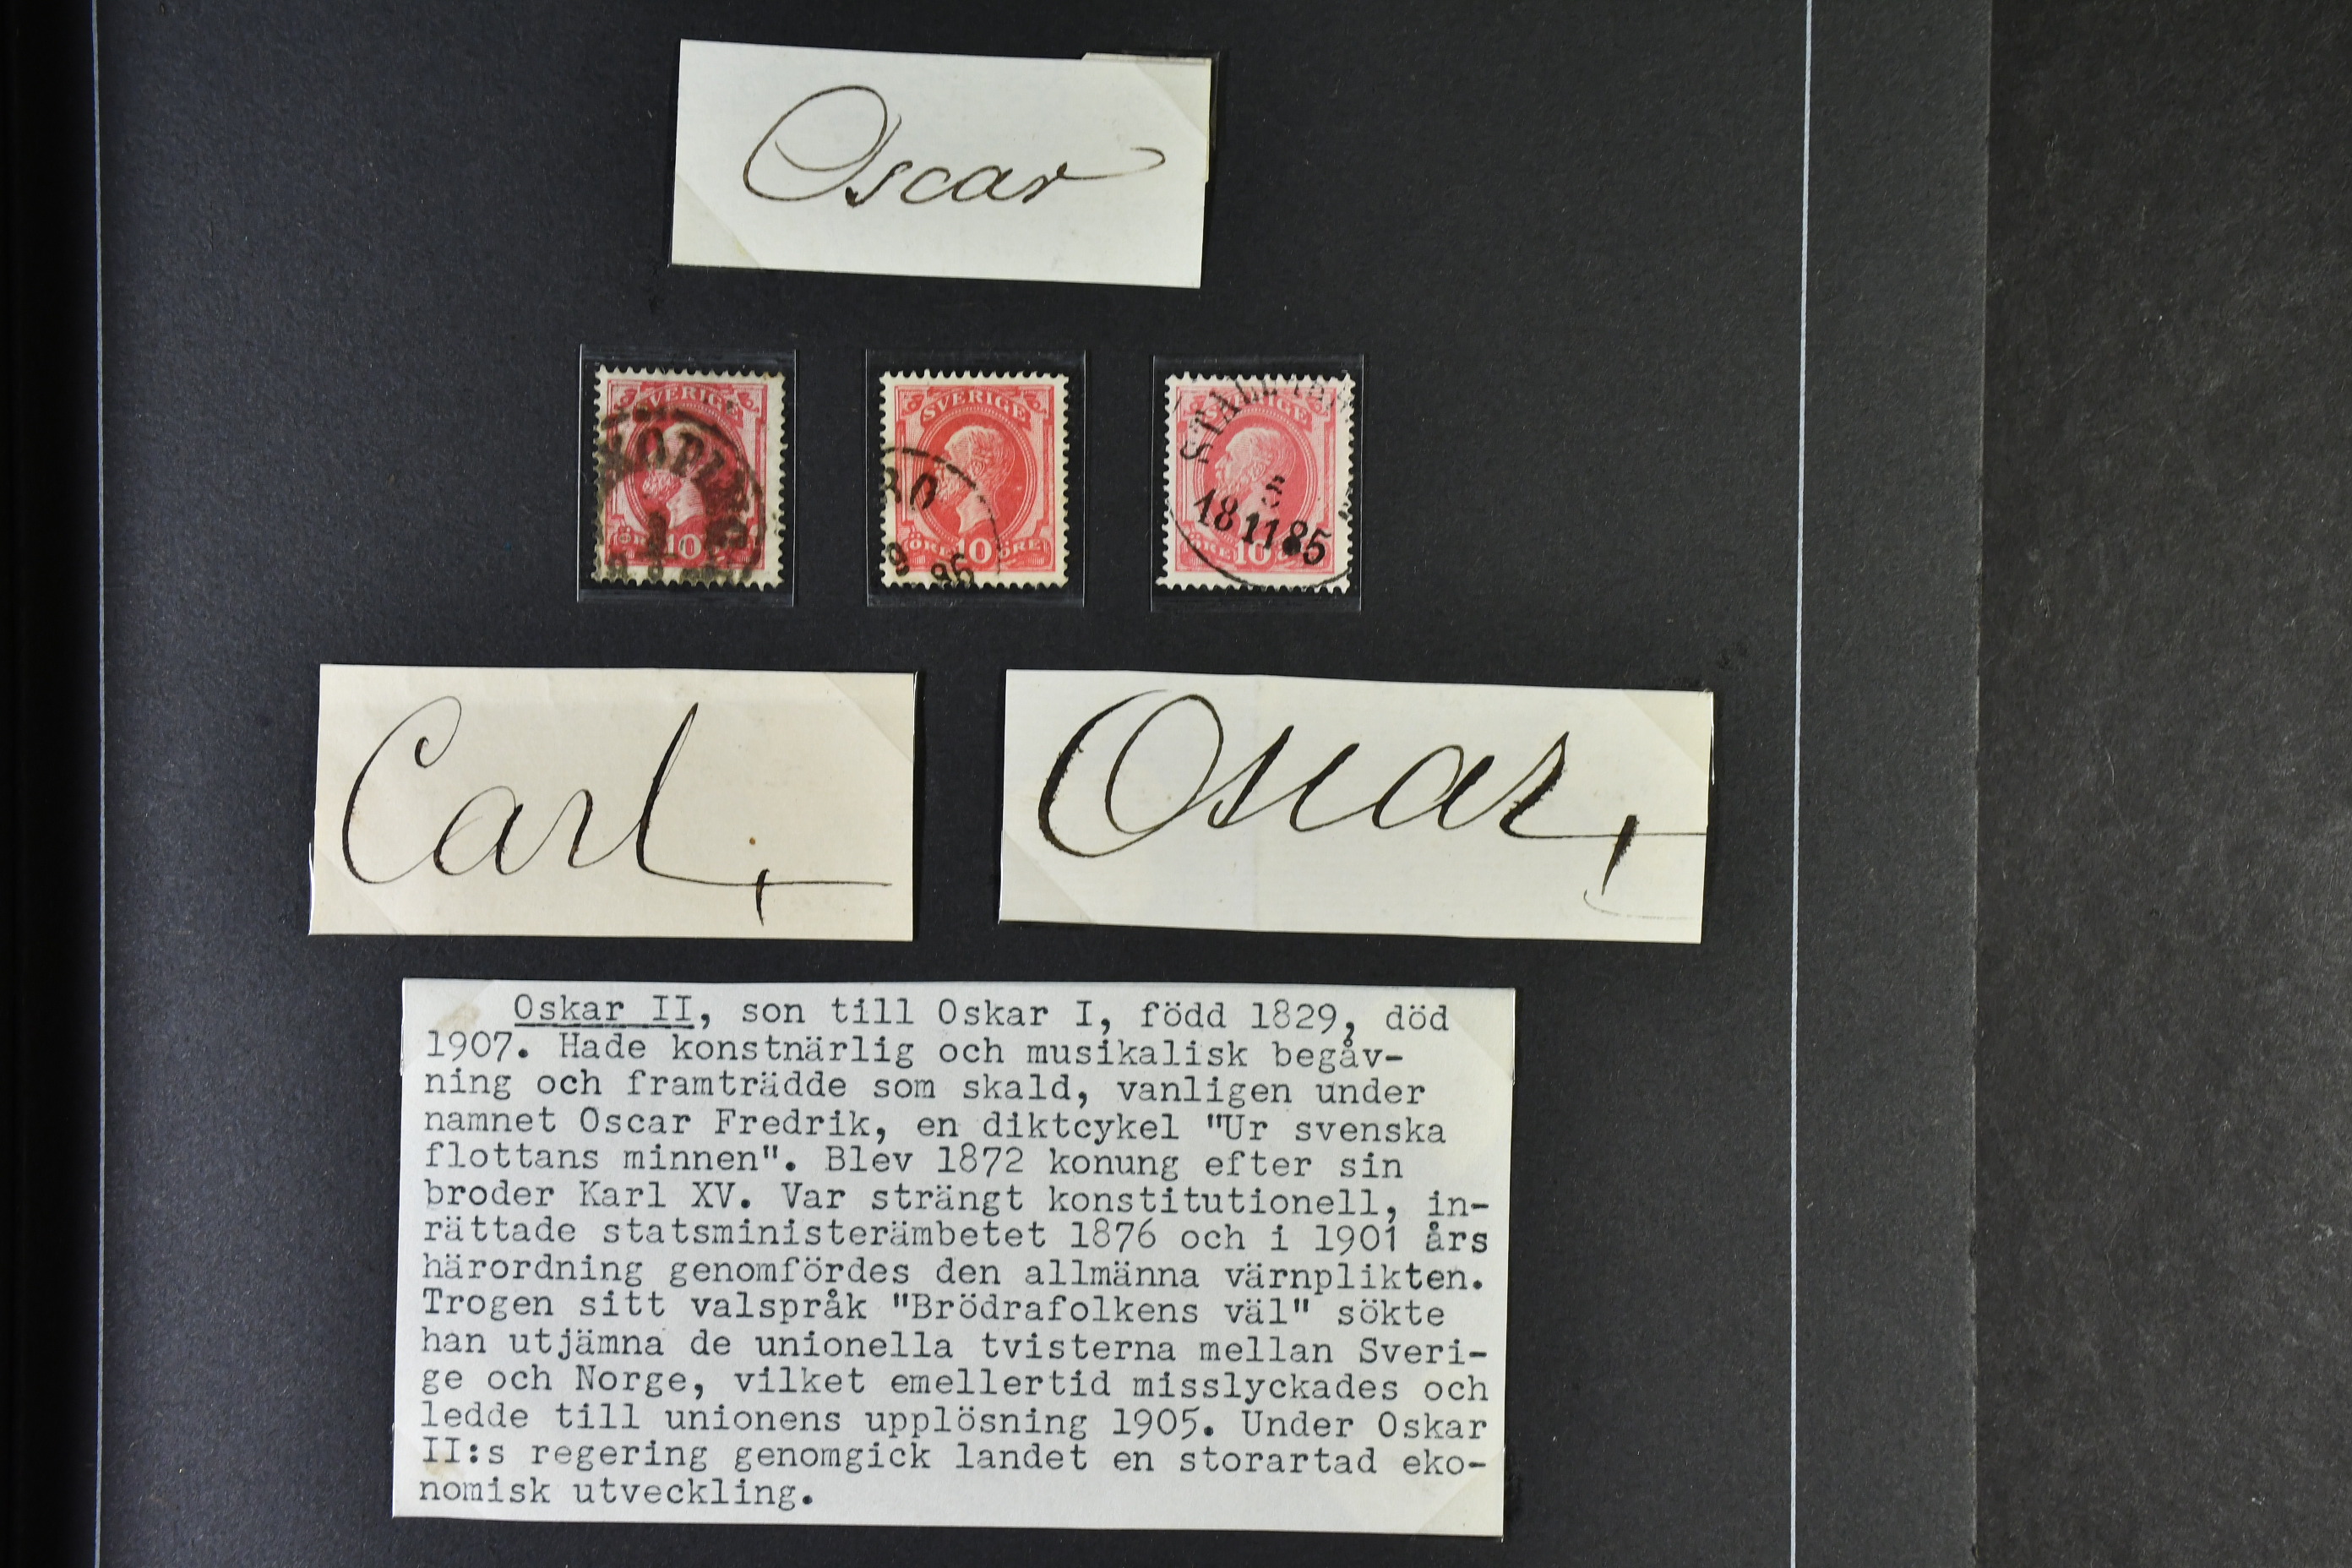 Oscar
SVERIGE
ÖRE 10
SVERIGE
RO
ÖRE 10 ÖRE
9 86
18 11 85
ÖRE 10
Carl
Oscar
Oskar II, son till Oskar I, född 1829, död
1907. Hade konstnärlig och musikalisk begåv-
ning och framträdde som skald, vanligen under
namnet Oscar Fredrik, en diktcykel "Ur svenska
flottans minnen". Blev 1872 konung efter sin
broder Karl XV. Var strängt konstitutionell, in-
rättade statsministerämbetet 1876 och i 1901 års
härordning genomfördes den allmänna värnplikten.
Trogen sitt valspråk "Brödrafolkens väl" sökte
han utjämna de unionella tvisterna mellan Sveri-
ge och Norge, vilket emellertid misslyckades och
ledde till unionens upplösning 1905. Under Oskar
II:s regering genomgick landet en storartad eko-
nomisk utveckling.